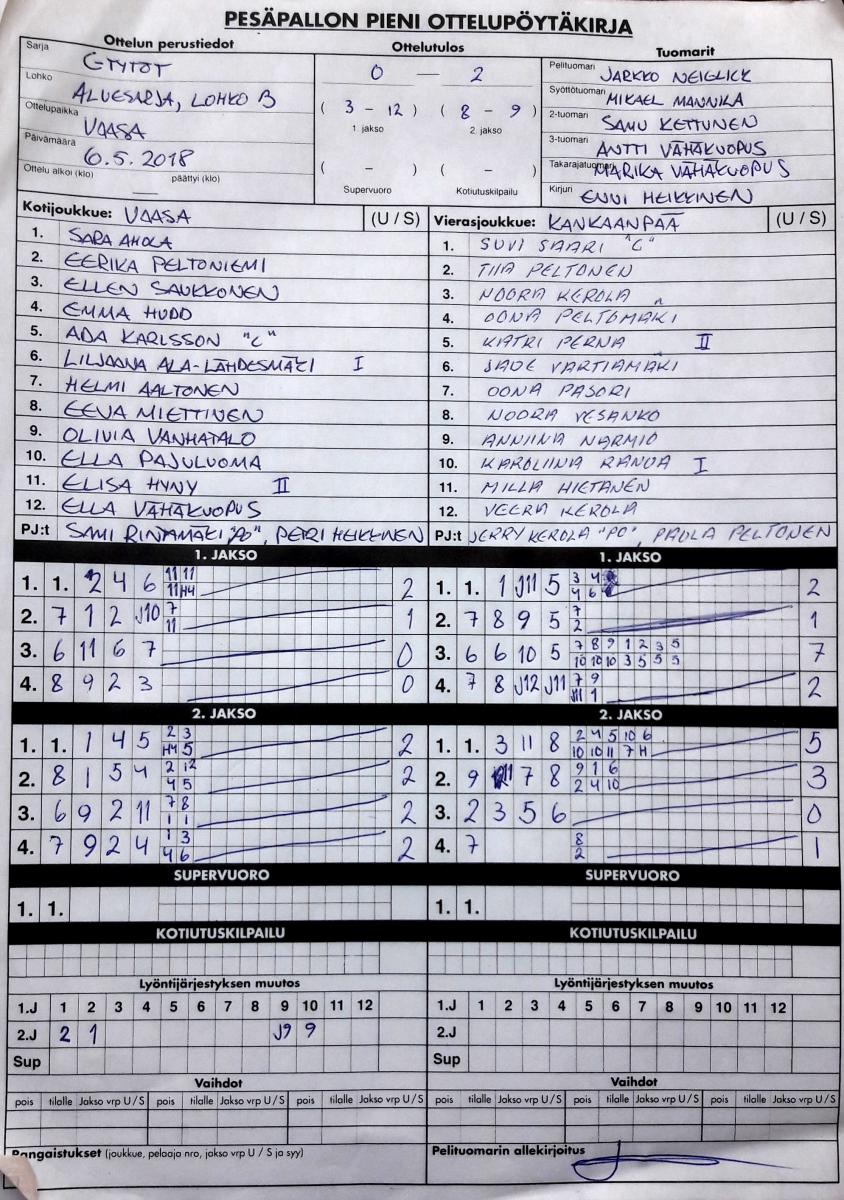 PESÄPALLON PIENI OTTELUPÖYTÄKIRJA
Ottelun perustiedot
Sarja GTYTÖT
Lohko ALUESARJA, LOHKO B
Ottelupaikka VAASA
Päivämäärä 6.5.2018
Ottelu alkoi (klo) — päättyi (klo)
Ottelutulos
0 — 2
( 3 - 12 ) ( 8 - 9 )
1. jakso 2. jakso
( - ) ( - )
Supervuoro Kotiutuskilpailu
Tuomarit
Pelituomari JARKKO NEIGLICK
Syöttötuomari MIKAEL MANNILA
2-tuomari SAMU KETTUNEN
3-tuomari ANTTI VÄHÄKUOPUS
Takarajatuomari MARIKA VÄHÄKUOPUS
Kirjuri ENNI HEIKKINEN
Kotijoukkue: VAASA (U / S)
1. SARA AHOLA
2. EERIKA PELTONIEMI
3. ELLEN SAUKKONEN
4. EMMA HUDD
5. ADA KARLSSON "C"
6. LILJAANA ALA-LÄHDESMÄKI I
7. HELMI AALTONEN
8. EEVA MIETTINEN
9. OLIVIA VANHATALO
10. ELLA PAJULUOMA
11. ELISA HYNY II
12. ELLA VÄHÄKUOPUS
PJ:t SAMI RINTAMÄKI "PO", PETRI HEIKKINEN
Vierasjoukkue: KANKAANPÄÄ (U / S)
1. SUVI SAARI "C"
2. TIIA PELTONEN
3. NOORA KEROLA
4. OONA PELTOMÄKI
5. KATRI PERNA II
6. JADE VARTIAMÄKI
7. OONA PAJORI
8. NOORA VESANKO
9. ANNIINA NARMIO
10. KAROLIINA RANUA I
11. MILLA HIETANEN
12. VEERA KEROLA
PJ:t JERRY KEROLA "PO", PAULA PELTONEN
1. JAKSO
1. 1. 2 4 6 11 11 2
11 H4
2. 7 1 2 J10 7 1
11
3. 6 11 6 7 0
4. 8 9 2 3 0
1. JAKSO
1. 1. 1 J11 5 3 4 2
4 6
2. 7 8 9 5 7 1
2
3. 6 6 10 5 7 8 9 1 2 3 5 7
10 10 10 3 5 5 5
4. 7 8 J12 J11 7 9 2
J11 1
2. JAKSO
1. 1. 1 4 5 2 3 2
H4 5
2. 8 1 5 4 2 12 2
4 5
3. 6 9 2 11 7 8 2
1 1
4. 7 9 2 4 1 3 2
4 6
2. JAKSO
1. 1. 3 11 8 2 4 5 10 6 5
10 10 11 7 H
2. 9 7 8 9 1 6 3
2 4 10
3. 2 3 5 6 0
4. 7 8 1
2
SUPERVUORO
1. 1.
SUPERVUORO
1. 1.
KOTIUTUSKILPAILU
KOTIUTUSKILPAILU
Lyöntijärjestyksen muutos
1.J 1 2 3 4 5 6 7 8 9 10 11 12
2.J 2 1 J9 9
Sup
Lyöntijärjestyksen muutos
1.J 1 2 3 4 5 6 7 8 9 10 11 12
2.J
Sup
Vaihdot
pois tilalle Jakso vrp U / S pois tilalle Jakso vrp U / S pois tilalle Jakso vrp U / S
Vaihdot
pois tilalle Jakso vrp U / S pois tilalle Jakso vrp U / S pois tilalle Jakso vrp U / S
Rangaistukset (joukkue, pelaaja nro, jakso vrp U / S ja syy)
Pelituomarin allekirjoitus